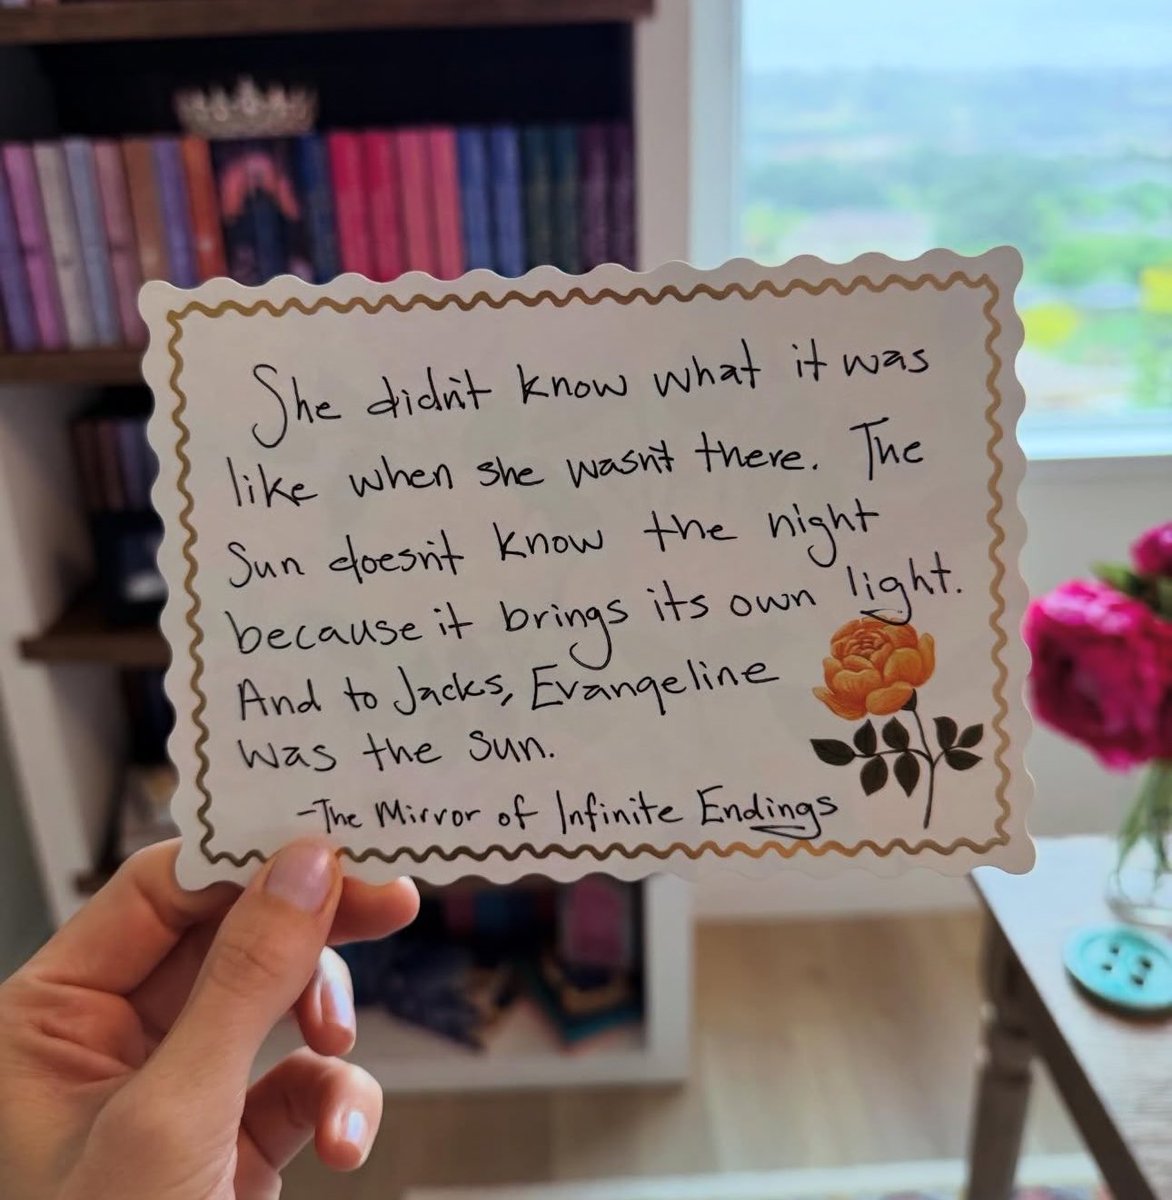 She didn't know what it was
like when she wasn't there. The
Sun doesn't know the night
because it brings its own light.
And to Jacks, Evangeline
was the sun.
-The Mirror of Infinite Endings